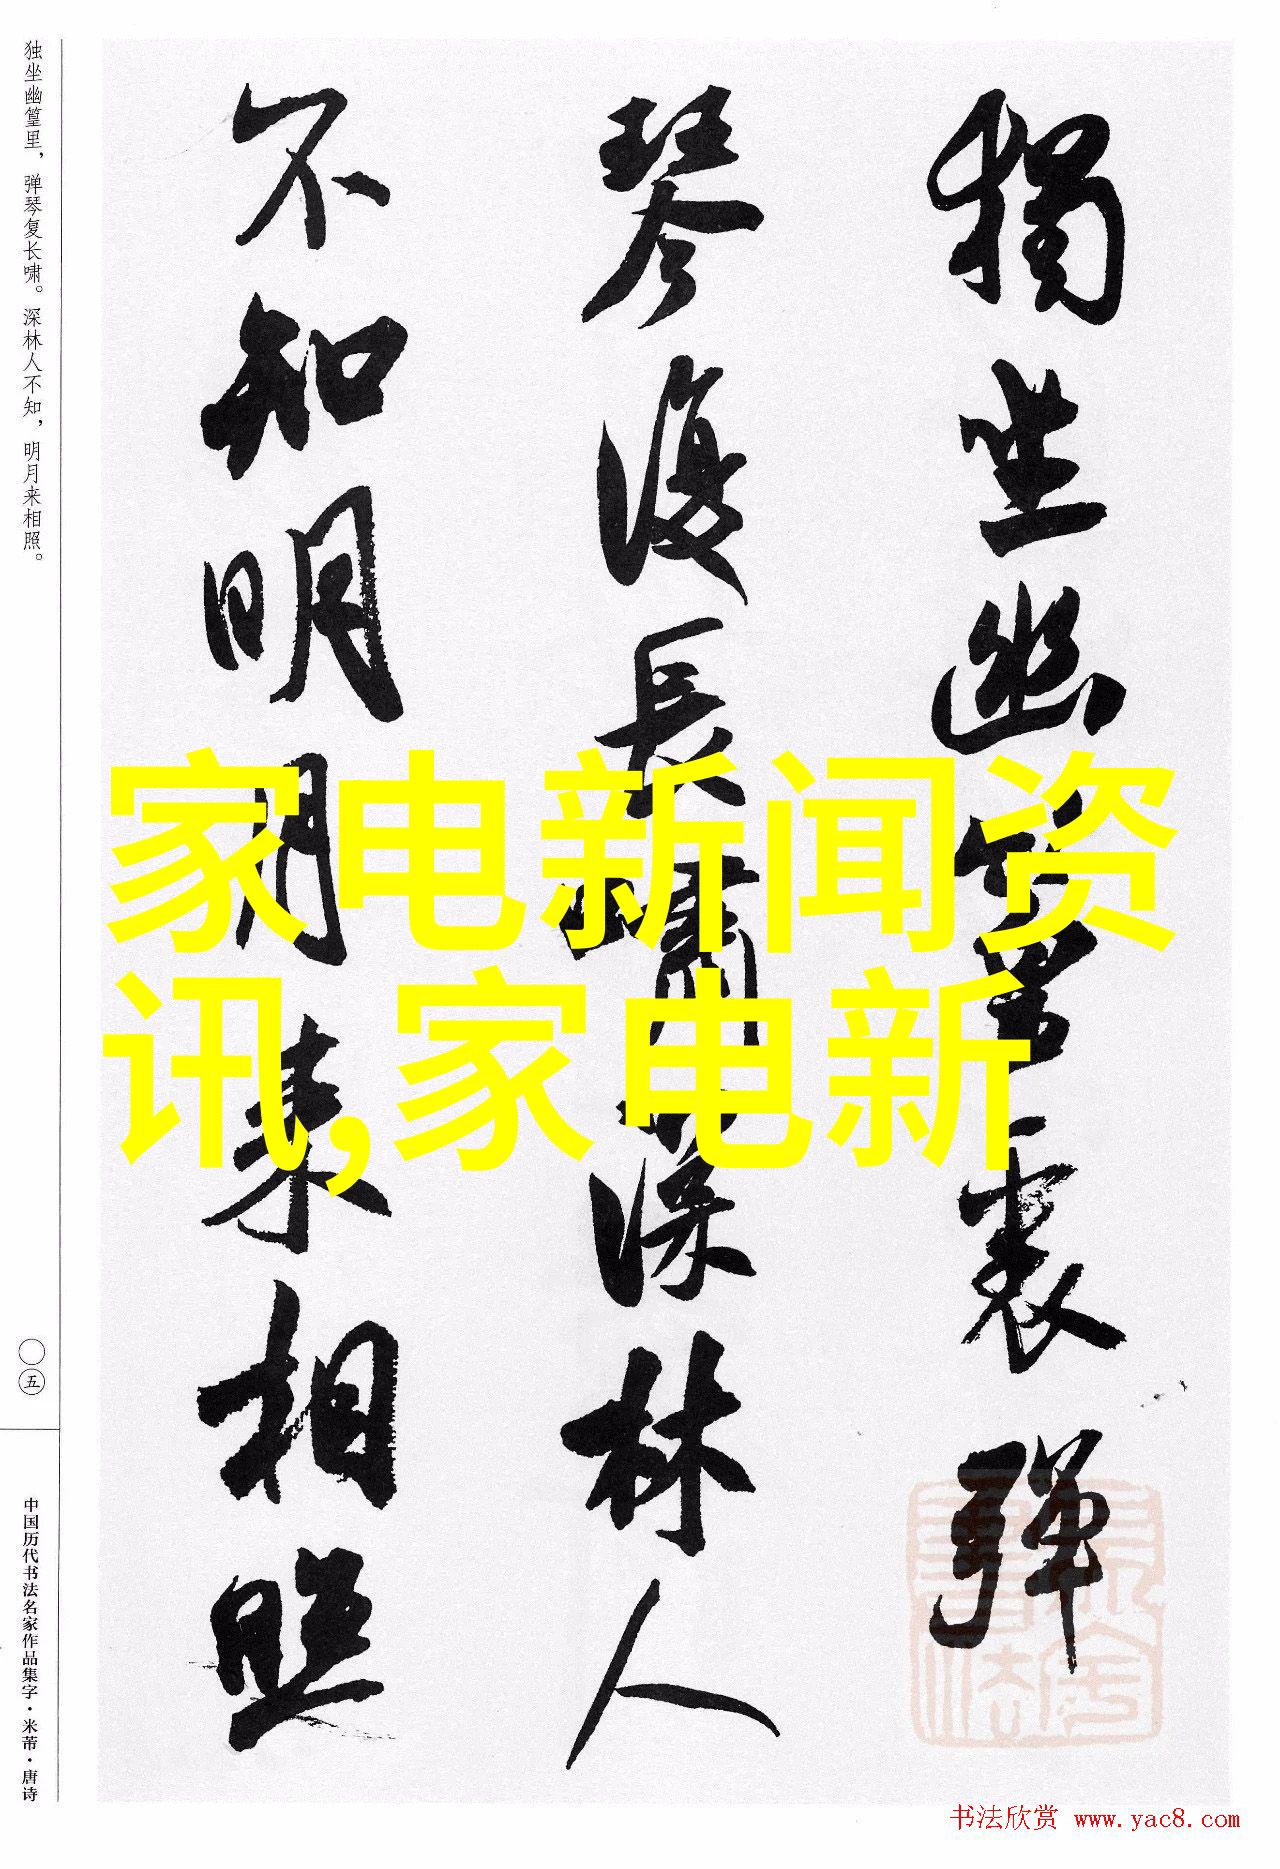 独坐幽篁里，弹琴复长啸。深林人不知，明月来相照。
獨坐幽篁裏彈
琴復長嘯深林人
不知明月来相照
家电新闻资
讯,家电新
〇五
中国历代书法名家作品集字·米芾·唐诗
书法欣赏 www.yac8.com